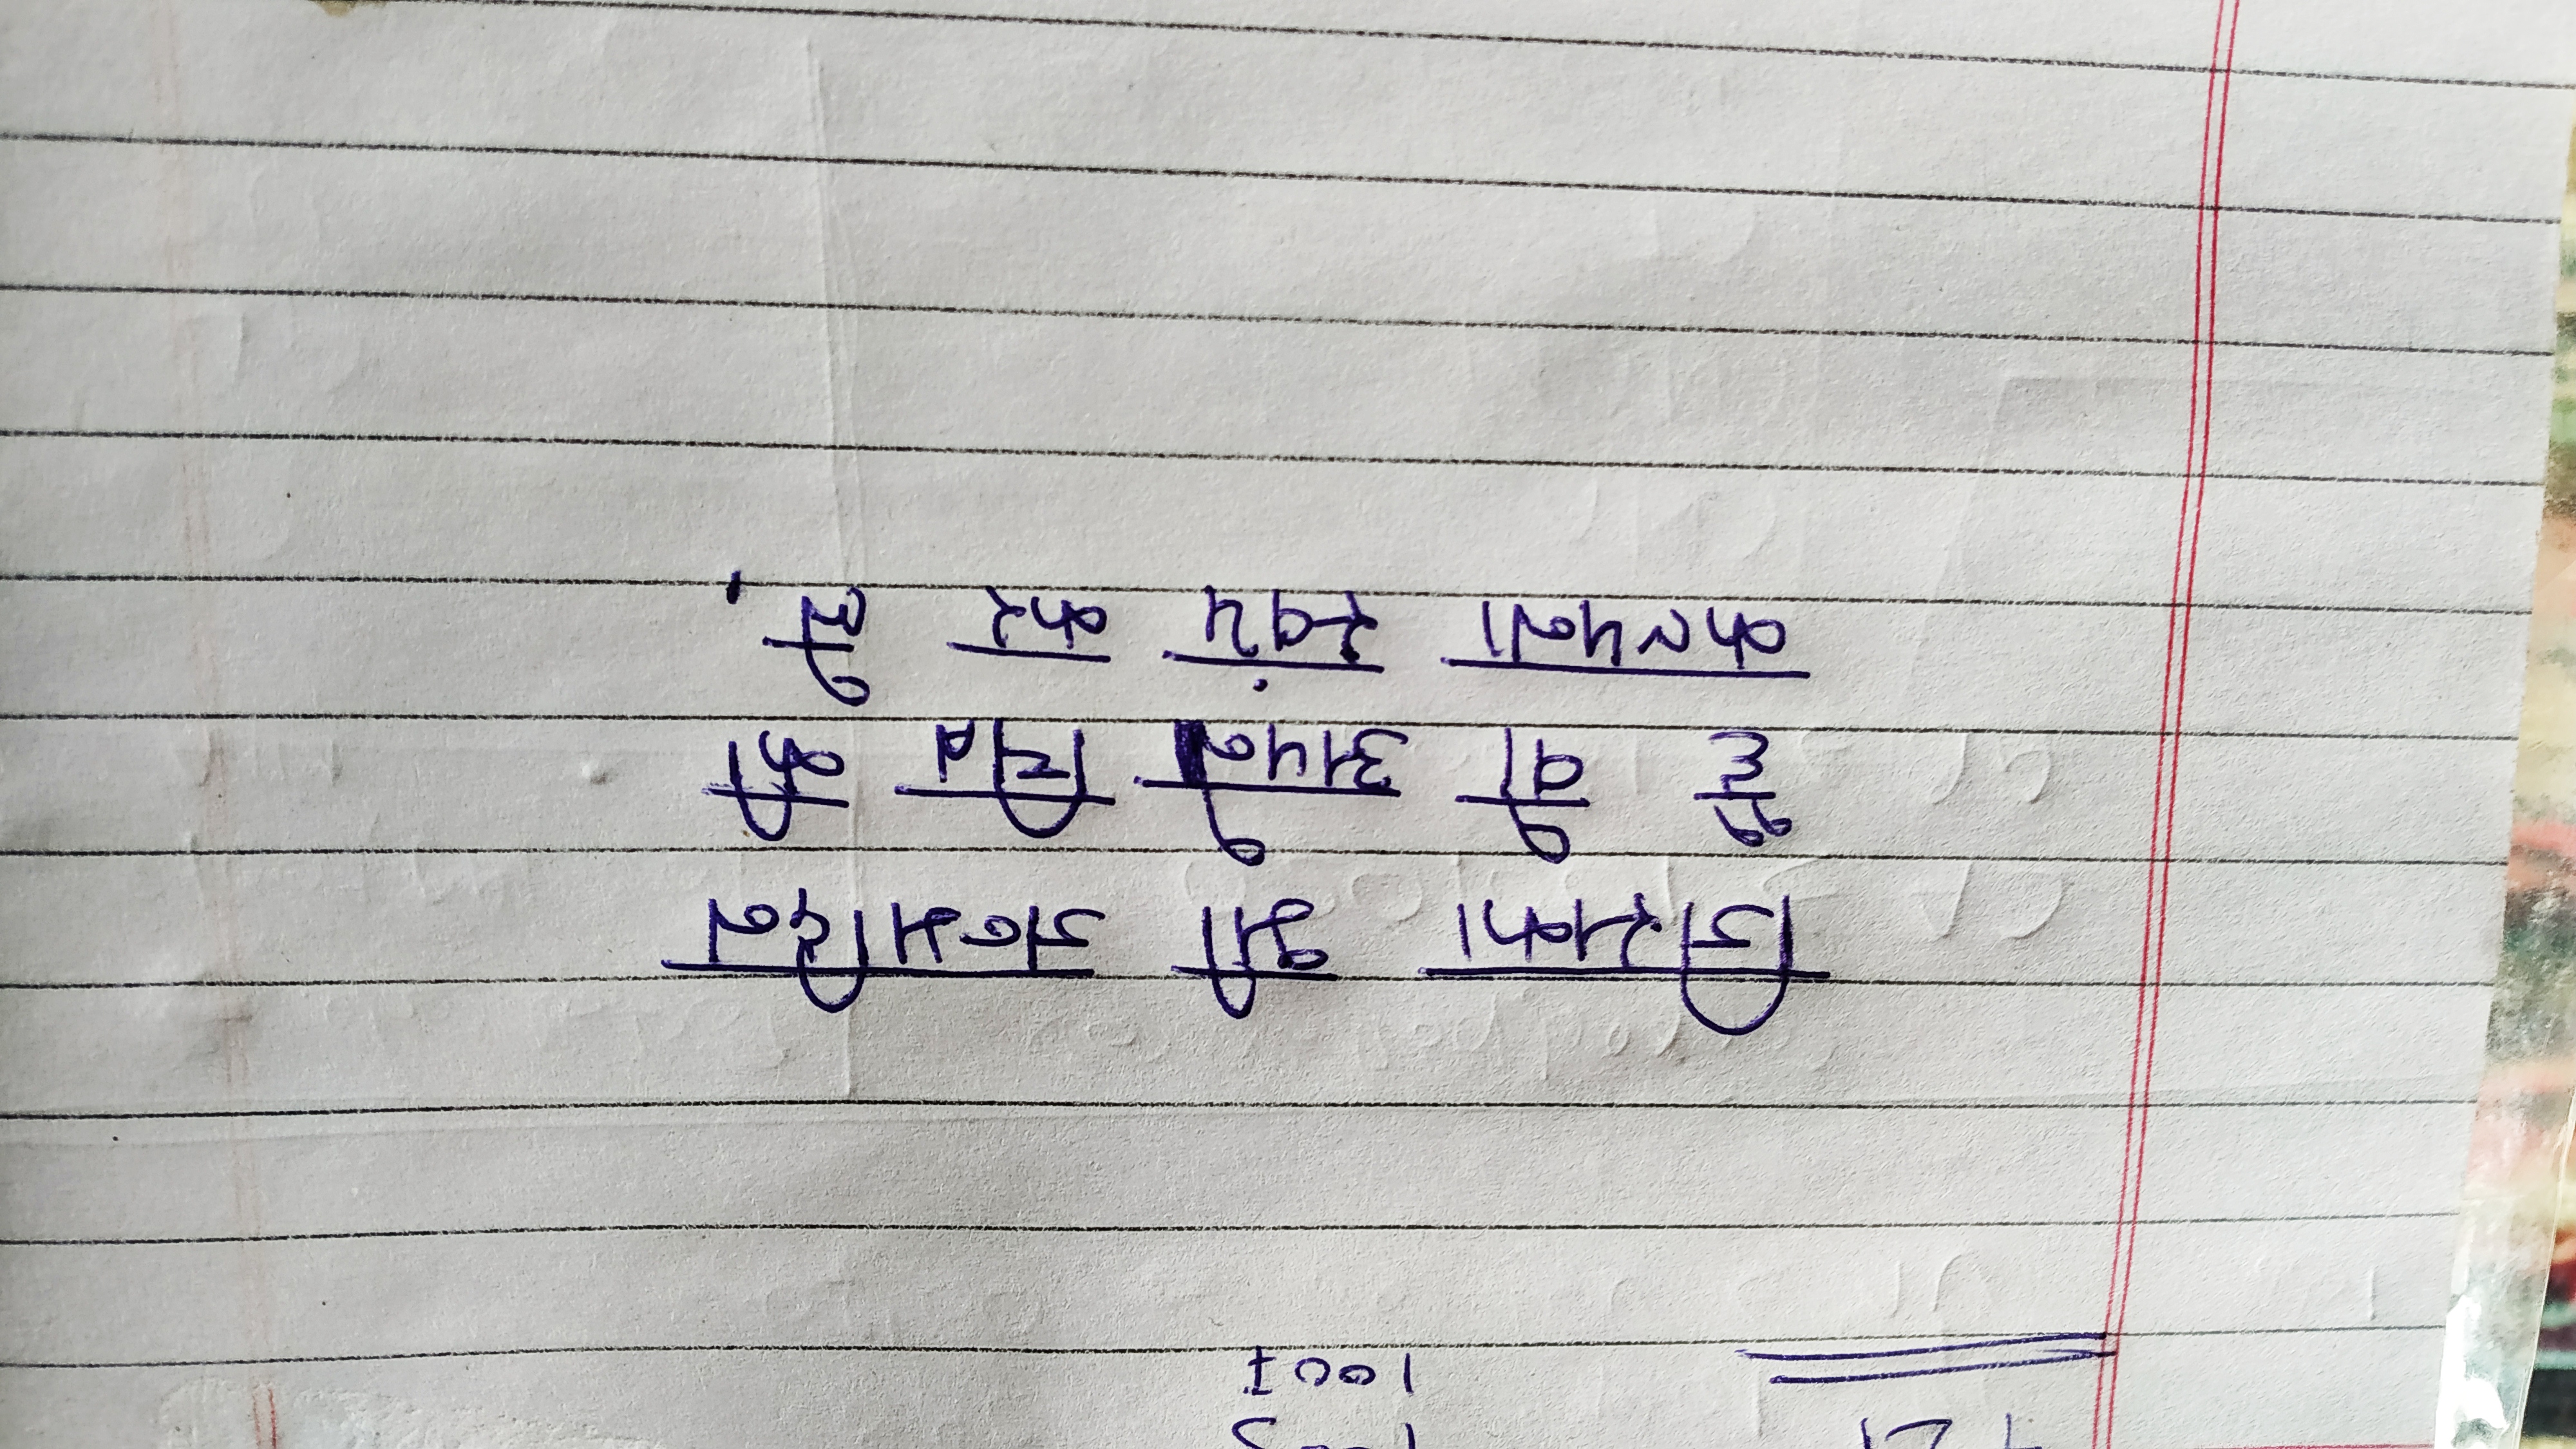 1007
जिसका भी जन्मदिन
है वो अपने चित्र की
कल्पना स्वंय कर ले,